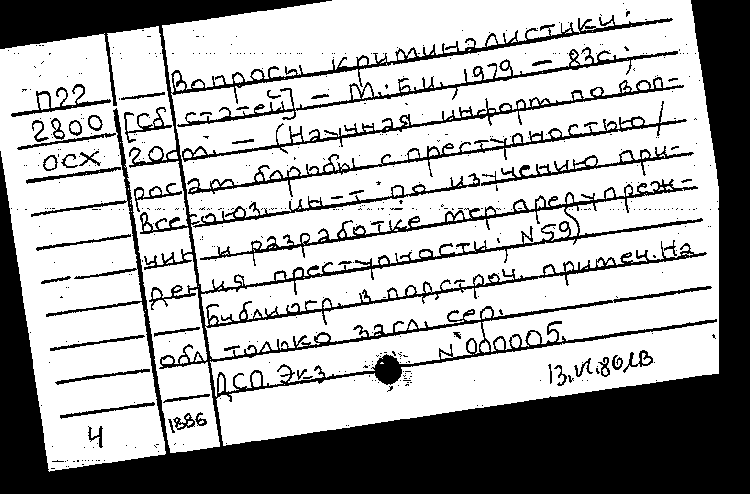 Вопросы криминалистики:
П22 [Сб. статей]. – М.: Б.и., 1979. – 83с.;
2800 20см. – (Научная информ. по воп-
ОСХ росам борьбы с преступностью /
Всесоюз. ин-т по изучению при-
чин и разработке мер предупреж-
дения преступности; N59)
Библиогр. в подстроч. примеч. На
обл. только загл. сер.
ДСП. Экз. N°000005.
4 1886 13.VI.80